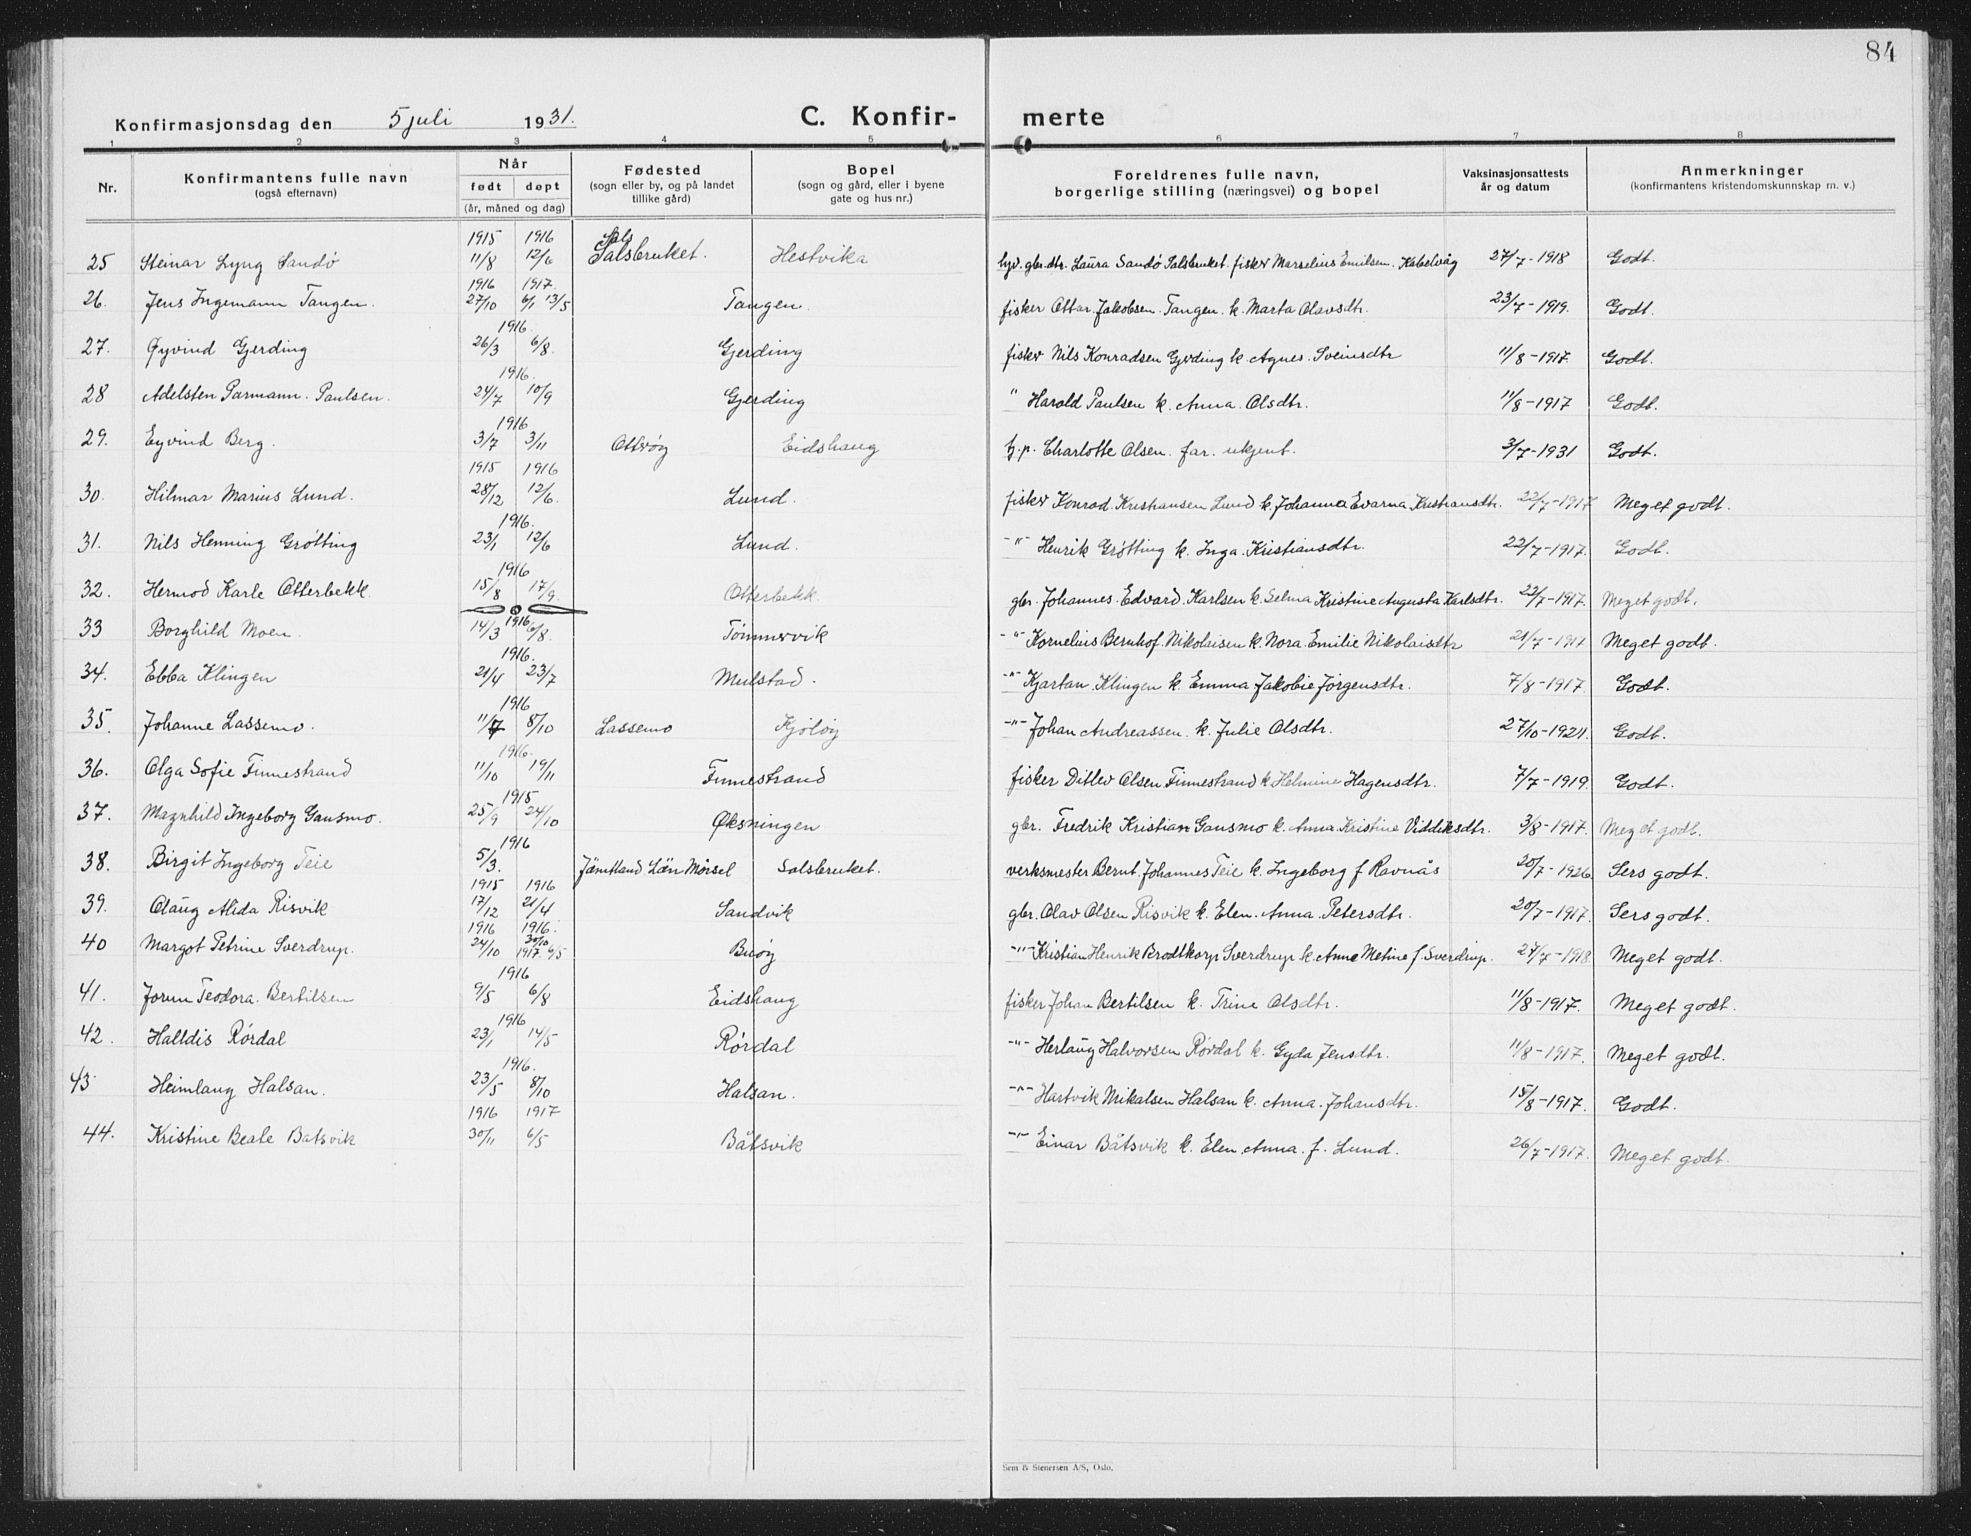 84
Konfirmasjonsdag den 5 juli 1931. C. Konfir- merte
1 2 3 4 5 6 7 8
Nr. Konfirmantens fulle navn (også efternavn) Når født døpt (år, måned og dag) Fødested (sogn eller by, og på landet tillike gård) Bopel (sogn og gård, eller i byene gate og hus nr.) Foreldrenes fulle navn, borgerlige stilling (næringsvei) og bopel Vaksinasjonsattests år og datum Anmerkninger (konfirmantens kristendomskunnskap m. v.)
1915 1916 Sals
25 Steinar Lyng Sandö 11/8 12/6 Salsbruket. Hestvika gbr.dtr. Laura Sandö Salsbruket. fisker Marselius Emilsen. Kabelvåg 27/7-1918 Godt.
1916 1917.
26. Jens Ingemann Tangen. 27/10 6/1 13/5 Tangen. fisker Ottar Jakobsen Tangen k. Marta Olavsdtr. 23/7-1919. Godt.
1916.
27. Øyvind Gjerding 26/3 6/8. Gjerding fisker Nils Konradsen Gjerding k. Agnes. Sveinsdtr 11/8-1917. Godt.
1916.
28 Adelsten Parmann. Paulsen. 24/7 10/9 Gjerding " Harald Paulsen k. Anna. Olsdtr. 11/8-1917 Godt.
1916
29. Eyvind Berg. 3/7 3/11 Otterøy Eidshaug p. Charlotte Olsen. far. ukjent. 3/7-1931 Godt.
1915 1916
30. Hilmar Marius Lund. 28/12 12/6. Lund. fisker Konrad Kristiansen Lund k. Johanna Evarna Kristiansdtr. 22/7-1917 Meget godt.
1916.
31. Nils Henning Grøtting 23/1 12/6 Lund. -"- Henrik Grøtting k. Inga. Kristiansdtr. 22/7-1917. Godt.
1916
32. Hermod Karle Otterbekk. 15/8 17/9. Otterbekk. gbr. Johannes. Edvard. Karlsen k. Selma Kristine Augusta Karlsdtr. 22/7-1917. Meget godt.
1916
33 Borghild Moen. 14/3 6/8. Tömmervik -"- Kornelius Bernhof. Nikolaisen k. Nora. Emilie Nikolaisdtr 21/7-1917 Meget godt.
1916.
34. Ebba Klingen 21/4 23/7 Mulstad. -"- Kjartan Klingen k. Emma Jakobie Jörgensdtr. 7/8-1917. Godt.
1916
35. Johanne Lassemo. 11/7 8/10 Lassemo Kjölöy -"- Johan Andreassen. k. Julie Olsdtr. 27/10-1921. Godt.
1916.
36. Olga Sofie Finnestrand 11/10 19/11 Finnestrand fisker Ditlev Olsen Finnestrand k Helmine Hagensdtr. 7/7-1919. Godt.
1915
37. Magnhild Ingeborg Gansmo. 25/9 24/10 Øksningen gbr. Fredrik Kristian Gansmo k. Anna Kristine Viddiksdtr. 3/8-1917. Meget godt.
1916
38. Birgit Ingeborg Teie 5/3. Jämtland Län Mörsel Salsbruket. verksmester Bernt. Johannes Teie k. Ingeborg f Ravnås 20/7-1926. Sers godt.
1915 1916
39. Olaug Alida Risvik 17/12 21/4 Sandvik gbr. Olav Olsen Risvik k. Elen. Anna. Petersdtr. 20/7-1917. Sers godt.
1916 1916.
40 Margot Petrine Sverdrup. 24/10 30/10 1917 6/5 Buöy -"- Kristian Henrik Brodtkorp Sverdrup k. Anne Metine f. Sverdrup. 27/7-1918. Meget godt.
1916
41. Jorun Teodora. Bertilsen 9/5 6/8 Eidshaug fisker Johan Bertilsen k. Trine Olsdtr. 11/8-1917. Meget godt.
1916
42. Halldis Rørdal 23/1 14/5 Rørdal -"- Herlaug Halvorsen Rørdal k. Gyda Jensdtr. 11/8-1917. Meget godt.
1916.
43 Heimlaug Halsan. 23/5 8/10 Halsan. -"- Hartvik Mikalsen Halsan k. Anna. Johansdtr. 15/8-1917. Godt.
1916 1917
44. Kristine Beate Båtsvik 30/11 6/5 Båtsvik -"- Einar Båtsvik k. Elen Anna. f. Lund. 26/7-1917. Meget godt.
Sem & Stenersen A/S, Oslo.